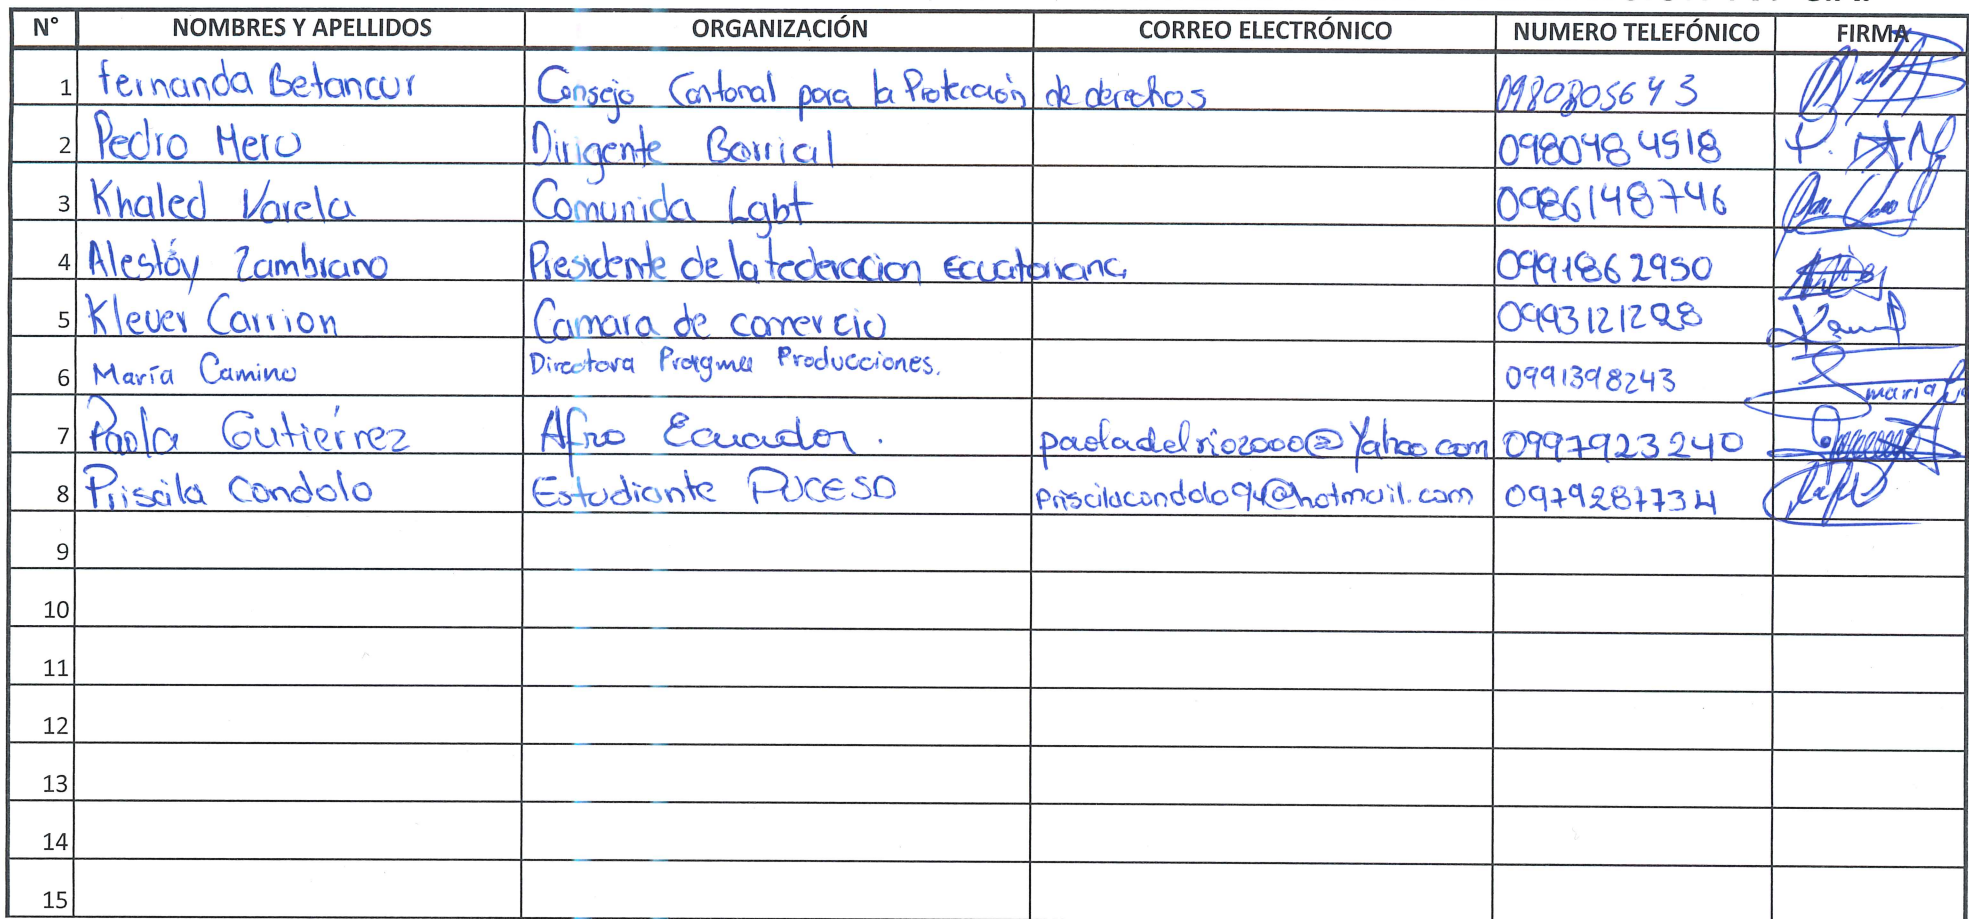 N° NOMBRES Y APELLIDOS ORGANIZACIÓN CORREO ELECTRÓNICO NUMERO TELEFÓNICO FIRMA
1 Fernanda Betancur Consejo Cantonal para la Protección de derechos 0980805643
2 Pedro Mero Dirigente Barrial 0980484518
3 Khaled Varela Comunida Lgbt 0986148746
4 Alestóy Zambrano Presidente de la federacion Ecuatoriana 0991862950
5 Klever Carrion Camara de comercio 0993121228
6 María Camino Directora Pragma Producciones. 0991398243 maria
7 Paola Gutiérrez Afro Ecuador. paoladelrio2000@Yahoo.com 0997923240
8 Priscila Condolo Estudiante PUCESD Priscilacondolo94@hotmail.com 0979287734
9
10
11
12
13
14
15